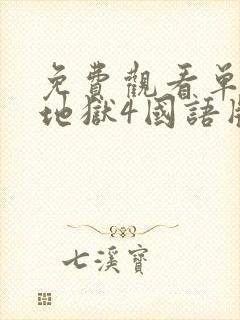 免費觀看單
地獄4國語版
七溪寶